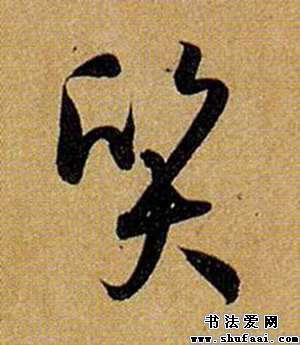 癸
书法爱网
www.shufaai.com